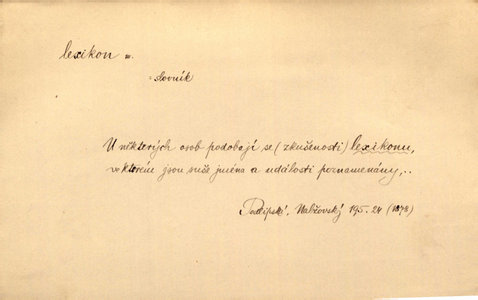 lexikon m.
= slovník
U některých osob podobají se (zkušenosti) lexikonu,
ve kterém jsou suše jména a události poznamenány, ..
Podlipské, Nalžovský 195. 24 (1878)